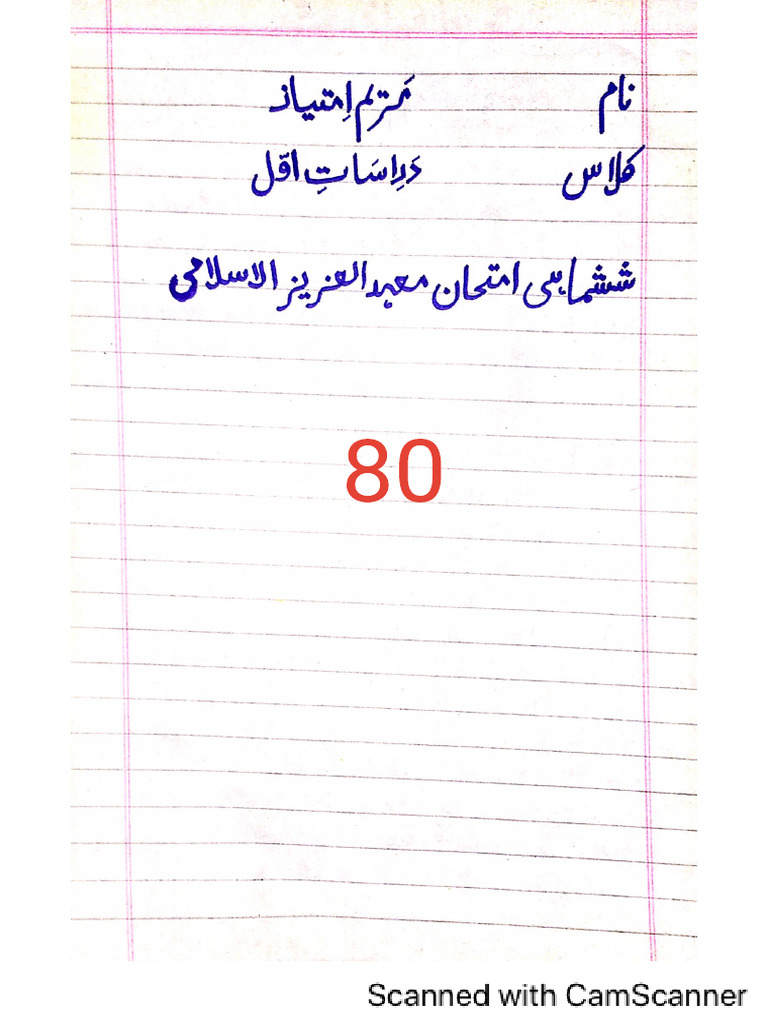 نام مَریم اِمتیاز
کلاس دَراسَاتِ اوّل
ششماہی امتحان معہد العزیز الاسلامی
80
Scanned with CamScanner